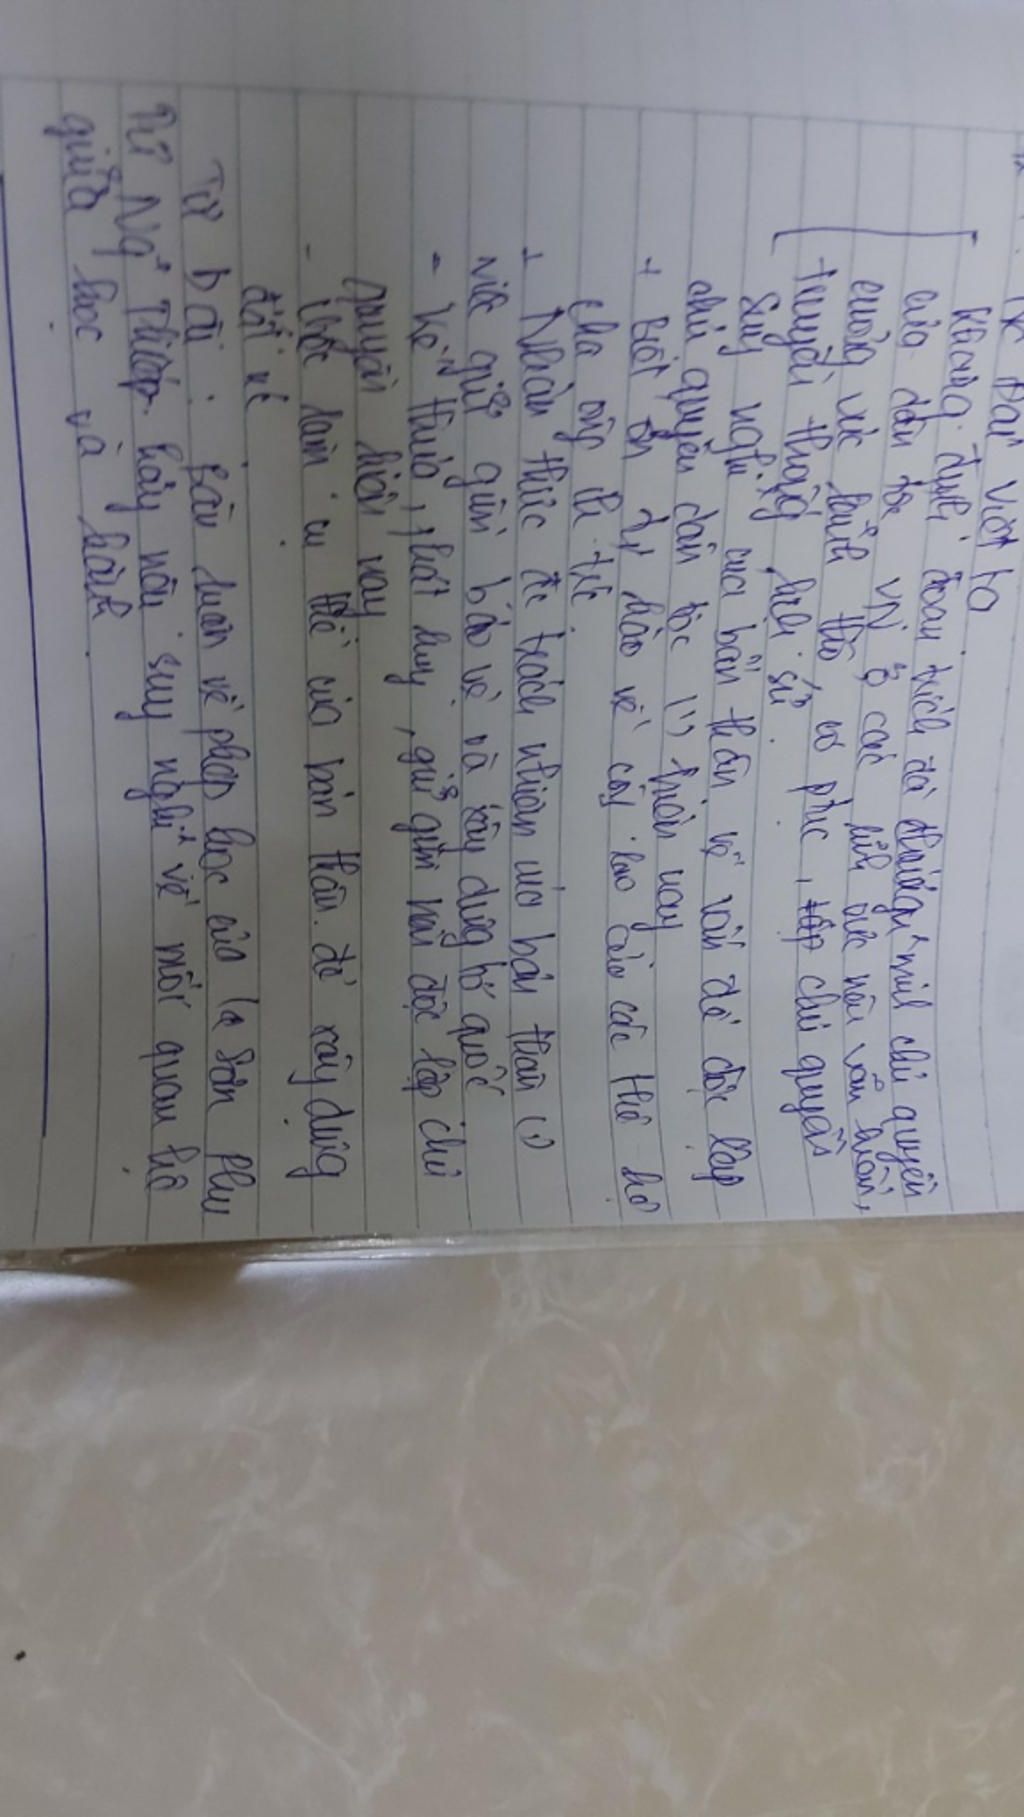 Đại Việt ta
Khẳng định đoạn trích đã chứng minh chủ quyền
của dân tộc VN ở các lĩnh vực nền văn hiến,
cương vực lãnh thổ và phục, chủ quyền
truyền thống lịch sử.
Suy nghĩ của bản thân về vấn đề độc lập
chủ quyền dân tộc (1) hiện nay
+ Biết ơn tự hào về công lao của các thế hệ
cha ông đi trước.
+ Nhận thức đc trách nhiệm của bản thân (1)
việc giữ gìn bảo vệ và xây dựng tổ quốc
- Kế thừa, phát huy, giữ gìn nền độc lập chủ
quyền hiện nay
- Việc làm cụ thể của bản thân để xây dựng
đất nc
Từ bài: Bàn luận về phép học của La Sơn Phu
Tử Ng~ Thiếp. hãy nêu suy nghĩ về mối quan hệ
giữa học và hành.